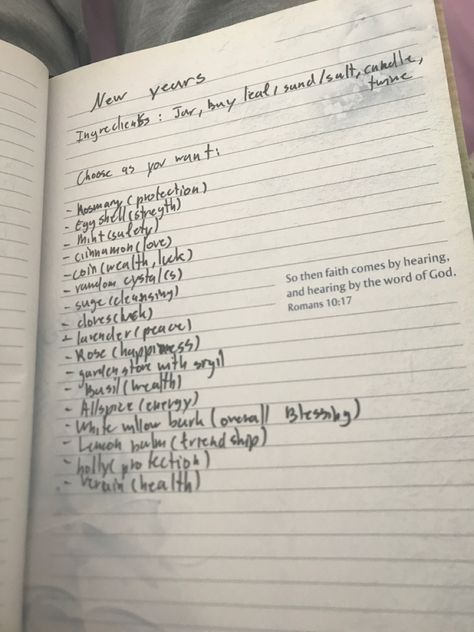 New years
Ingredients : Jar, bay leaf, sand/salt, candle,
twine
Choose as you want:
- Rosmary (protection)
- Egg shell (stregth)
- Mint (safety)
- Ciinnamon (love)
- coin (wealth, luck)
- random cystal(s)
- suge (cleansing)
- cloves (luck)
- lavender (peace)
- Rose (happiness)
- garden stone with sigil
- Basil (wealth)
- Allspice (energy)
- White willow bark (overall Blessing)
- Lemon balm (friendship)
- holly (protection)
- Vervain (health)
So then faith comes by hearing,
and hearing by the word of God.
Romans 10:17